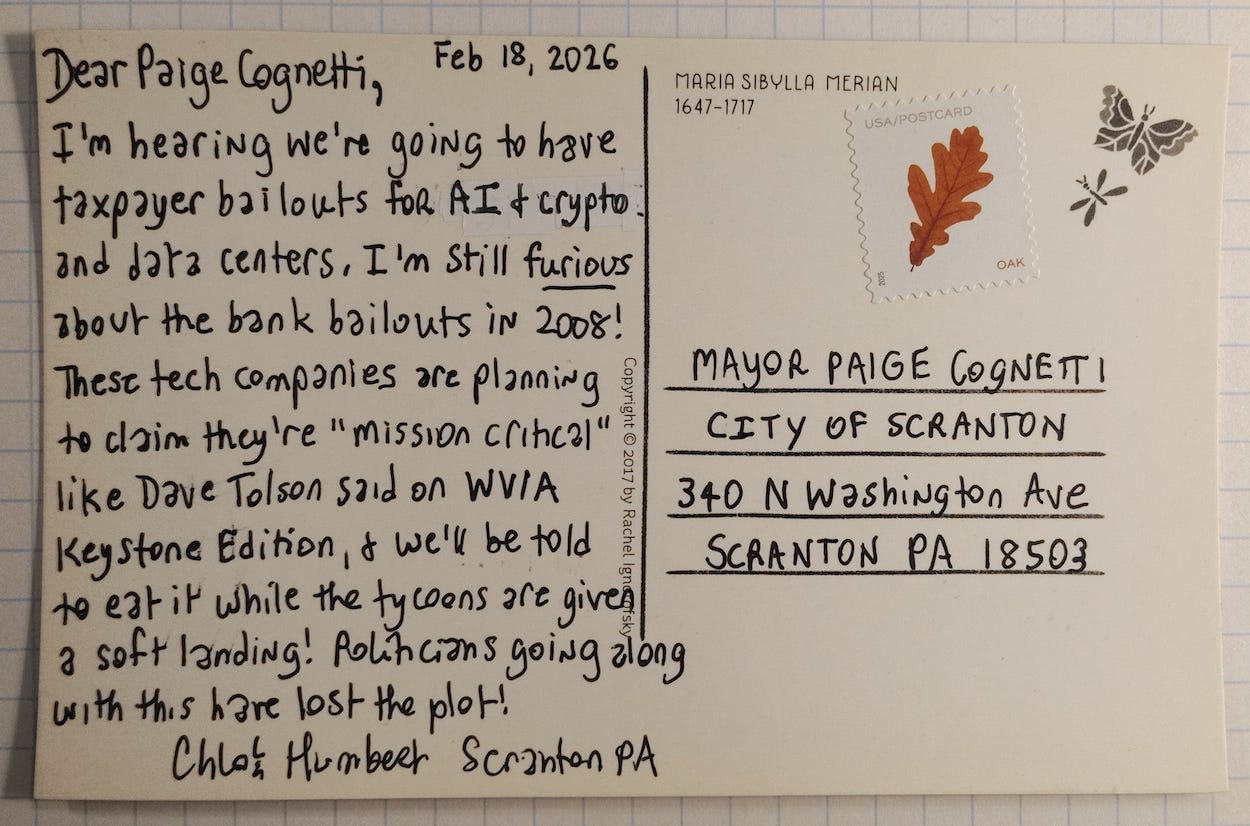 Feb 18, 2026
Dear Paige Cognetti,
I'm hearing we're going to have
taxpayer bailouts for AI & crypto
and data centers. I'm still furious
about the bank bailouts in 2008!
These tech companies are planning
to claim they're "mission critical"
like Dave Tolson said on WVIA
Keystone Edition, & we'll be told
to eat it while the tycoons are given
a soft landing! Politicians going along
with this have lost the plot!
Chloë Humbert Scranton PA
Copyright © 2017 by Rachel Ignotofsky
MARIA SIBYLLA MERIAN
1647-1717
USA/POSTCARD
OAK
2025
MAYOR PAIGE COGNETTI
CITY OF SCRANTON
340 N Washington Ave
SCRANTON PA 18503